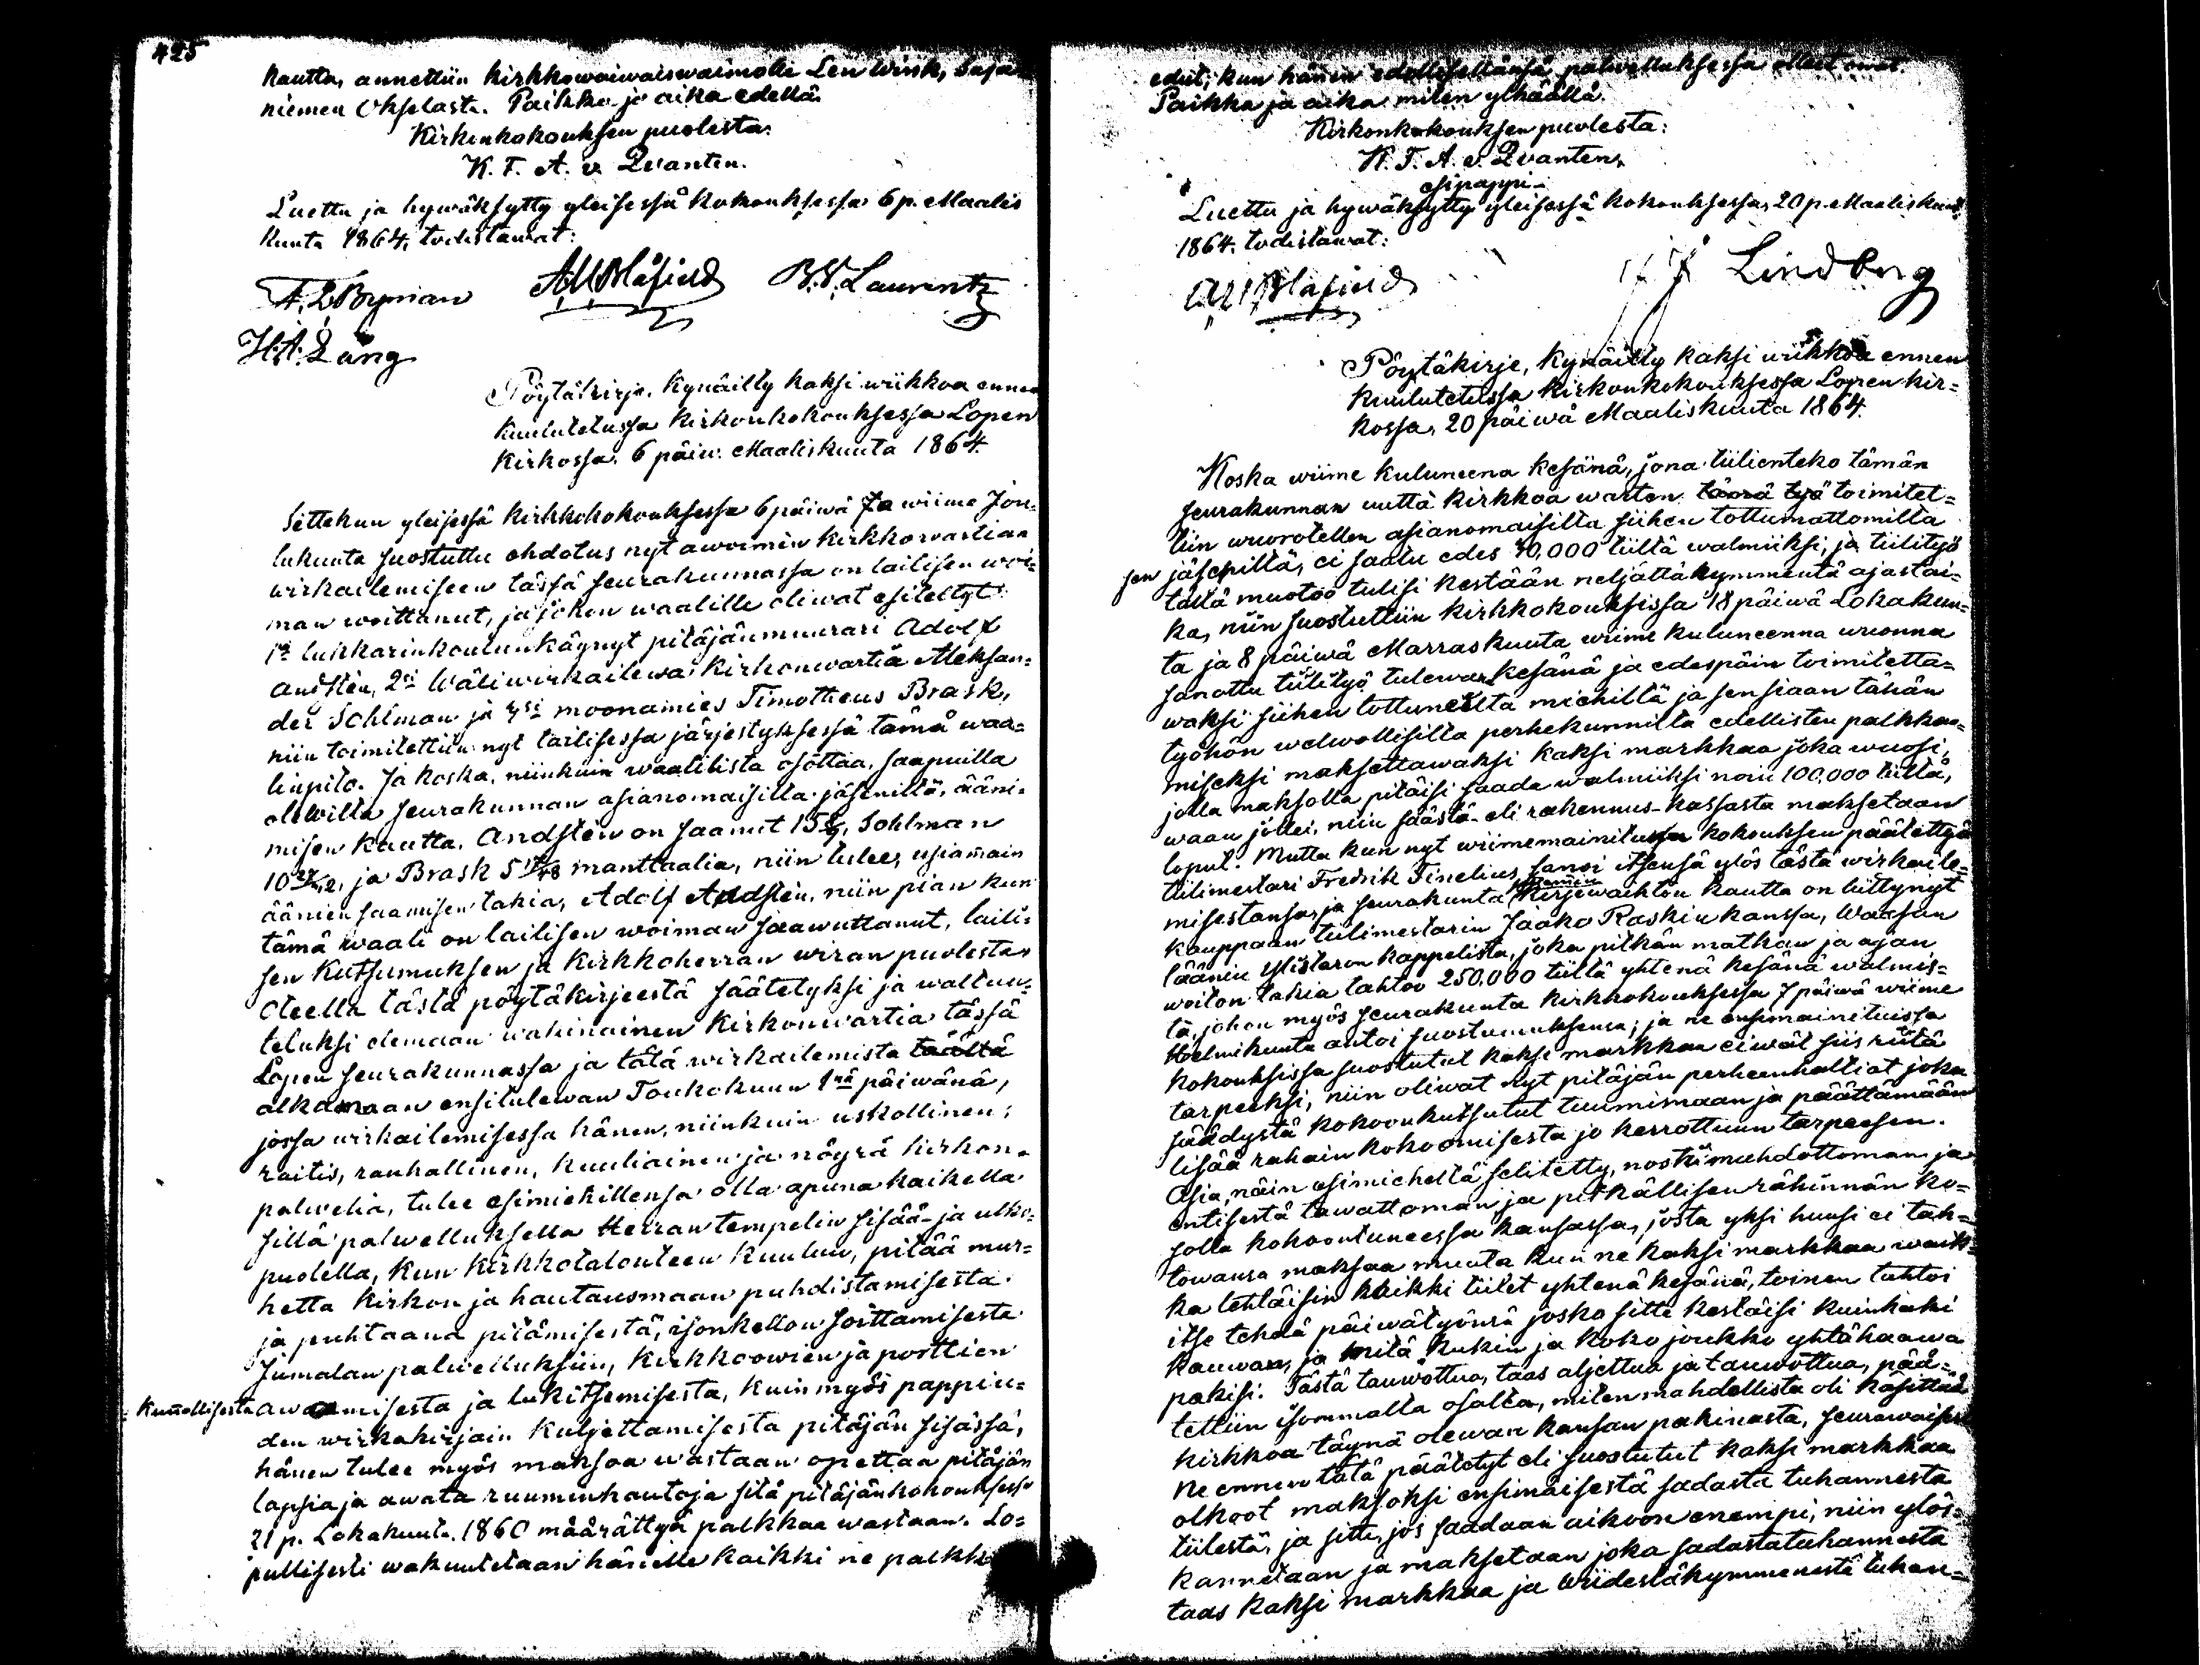 425
kautta, annettiin kirkkowaiwaiswaimolle Len Winsk, Saja
niemen Ohselasta. Paikka ja aika edellä.
Kirkonkokouksen puolesta:
K. F. A. v. Qvanten.
Luettu ja hywäksytty yleisessä kokouksessa 6 p. Maalis
kuuta 1864, todistawat:
A. L. Byman A. W. Blåfield B. V. Laurentz
H. A. Lång
Pöytäkirja, kynäilty kaksi wiikkoa ennen
kuulutetussa kirkonkokouksessa Lopen
kirkossa. 6 päiw. Maaliskuuta 1864.
Sittekun yleisessä kirkkokokouksessa 6 päiwä ta wiime Jou-
lukuuta suostuttu ehdotus nyt awoimin kirkkowartian
wirkailemiseen tässä seurakunnassa on laillisen woi-
man woittanut, ja johon waalille oliwat esitellyt:
1si lukkarinkoulunkäynyt pitäjänmuurari Adolf
Andstén, 2si Wäliwirkailewa kirkonwartia Aleksan-
der Sohlman ja 3si moonamies Timotheus Brask,
niin toimitettiin nyt laillisessa järjestyksessä tämä waa-
linpito. Ja koska, niinkuin waalilista osottaa, saapuilla
olewilta seurakunnan asianomaisilta jäseniltä, ääni-
misen kautta, Andstén on saanut 15 , Sohlman
10 , ja Brask 5 manttaalia, niin tulee, usiamain
äänien saamisen takia, Adolf Andstén, niin pian kun
tämä waali on laillisen woiman saawuttanut, lailli-
sen kutsumuksen ja kirkkoherran wiran puolesta
oteella tästä pöytäkirjeestä säätetyksi ja waltuu-
tetuksi olemaan wakinainen kirkonwartia tässä
Lopen seurakunnassa ja tätä wirkailemista täältä
alkamaan ensitulewan Toukokuun 1nä päiwänä,
jossa wirkailemisessa hänen, niinkuin uskollinen,
raitis, rauhallinen, kuuliainen ja nöyrä kirkon-
palwelia, tulee esimiehillensä olla apuna kaikella
sillä palwelluksella Herran tempelin sisää- ja ulko-
puolella, kun kirkkotalouteen kuuluu, pitää mur-
hetta kirkon ja hautausmaan puhdistamisesta
ja puhtaana pitämisestä, isonkellon soittamisesta
Jumalan palwelluksiin, kirkkoowien ja porttien
kunnollisesta awaamisesta ja lukitsemisesta, kuin myös pappin-
den wirkakirjain kuljettamisesta pitäjän sisässä,
hänen tulee myös maksoa wastaan opettaa pitäjän
lapsia ja awata ruuminhautoja sitä pitäjänkokouksessa
21 p. Lokakuuta 1860 määrättyä palkkaa wastaan. Lo-
pullisesti wakuutetaan hänelle kaikki ne palkka
edut, kun hänen edellisellänsä palwelluksessa olleet owat.
Paikka ja aika miten ylhäällä.
Kirkonkokouksen puolesta:
K. F. A. v. Qvanten,
esipappi.
Luettu ja hywäksytty yleisessä kokouksessa, 20 p. Maaliskuuta
1864. todistawat:
A. W. Blåfield Lindberg
Pöytäkirje, kynäilty kaksi wiikkoa ennen
kuulutetussa kirkonkokouksessa Lopen kir-
kossa, 20 päiwä Maaliskuuta 1864.
Koska wiime kuluneena kesänä, jona tiilienteko tämän
seurakunnan uutta kirkkoa warten toimitet-
tiin wuorotellen asianomaisilta siihen tottumattomilta
jäseniltä, ei saatu edes 40,000 tiiltä walmiiksi, ja tiilityö
sen tällä muotoo tulisi kestään neljättäkymmentä ajastai-
ka, niin suostuttiin kirkkokouksissa 18 päiwä Lokakuu-
ta ja 8 päiwä Marraskuuta wiime kuluneenna wuonna
sanottu tiilityö tulewan kesänä ja edespäin toimitetta-
waksi siihen tottuneelta miehiltä ja sensiaan tähän
työhön welwollisilta perhekunnilta edellisten palkkaa-
miseksi maksettawaksi kaksi markkaa joka wuosi,
jolla maksolla pitäisi saada walmiiksi noin 100,000 tiiltä,
waan jollei, niin säästä- eli rakennus-kassasta maksetaan
loput. Mutta kun nyt wiimemainitussa kokouksen päätettyä
tiilimestari Fredrik Finelius sanoi itsensä ylös tästä wirkaile-
misestansa, ja seurakunta kirjewaihton kautta on liittynyt
kauppaan tiilimestarin Jaako Raskin kanssa, Waasan
läänin Ylistaron kappelista, joka pitkän matkan ja ajan
woiton takia tahtoo 250,000 tiiltä yhtenä kesänä walmis-
tä, johon myös seurakunta kirkkokouksessa 7 päiwä wiime
Helmikuuta antoi suostumuksensa; ja ne ensimainituissa
kokouksissa suostutut kaksi markkaa eiwät siis riitä
tarpeeksi, niin oliwat nyt pitäjän perheenhaltiat joka
säädystä kokoonkutsutut tuumimaan ja päättämään
lisää rahain kokoomisesta jo kerrottuun tarpeesen.
Asia, näin esimieheltä selitetty, nosti mahdottoman ja
entisestä tawattoman ja pitkällisen rähinnän ko-
solla kokoontuneessa kansassa, josta yksi huusi ei tah-
towansa maksaa muuta kun ne kaksi markkaa waik-
ka tehtäisin kaikki tiilet yhtenä kesänä, toinen tahtoi
itse tehdä päiwätyönsä josko sitte kestäisi kuinkaki
kauwan, ja mitä kukin ja koko joukko yhtähaawa
pakisi. Tästä tauwottua, taas aljettua ja tauwottua, pää-
tettiin isommalta osalta, miten mahdollista oli käsittää
kirkkoa täynä olewan kansan pakinasta, seurawaisesti
ne ennen tätä päätetyt eli suostutut kaksi markkaa
olkoot maksoksi ensimäisestä sadasta tuhannesta
tiilestä, ja sitte, jos saadaan aikoon enempi, niin ylös-
kannetaan ja maksetaan joka sadastatuhannesta
taas kaksi markkaa ja wiidestäkymmenestä tuhan-